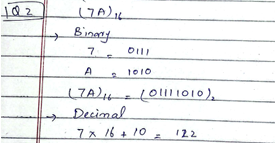 1Q2 (7A)₁₆
→ Binary
7 = 0111
A = 1010
(7A)₁₆ = (01111010)₂
→ Decimal
7 × 16 + 10 = 122